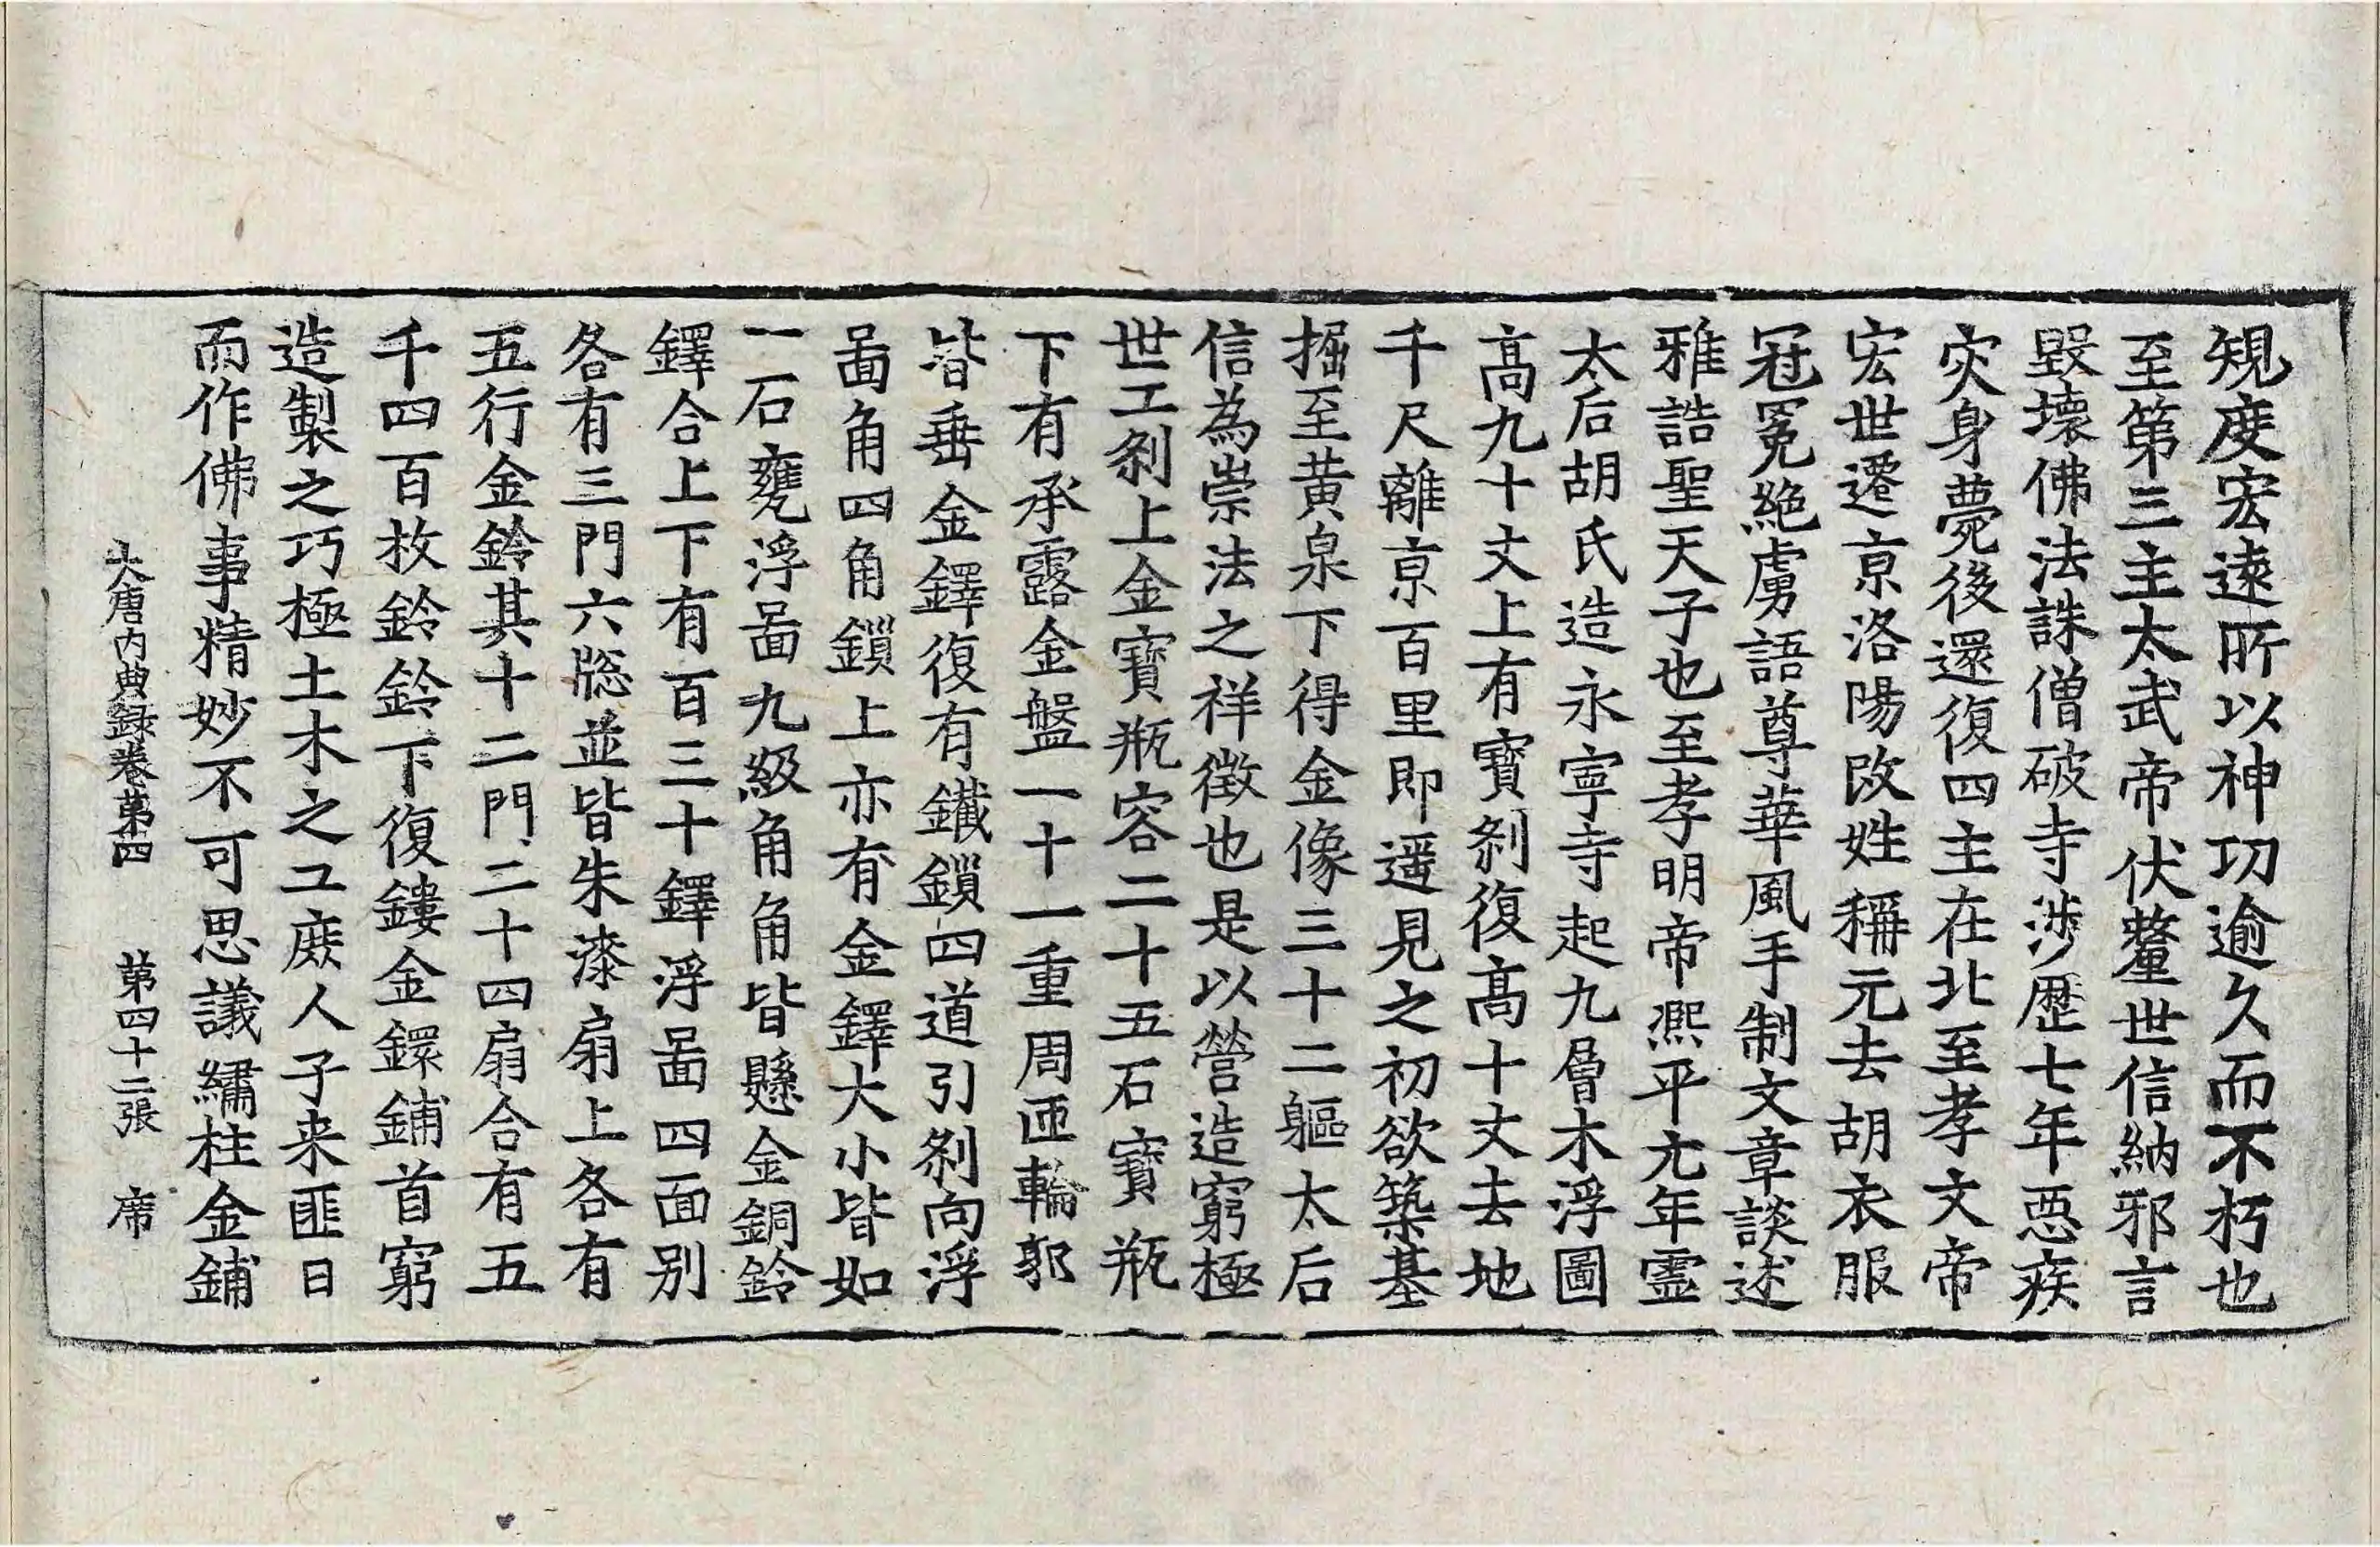 規度宏遠所以神功逾久而不朽也
至第三主太武帝伏釐世信納邪言
毀壞佛法誅僧破寺涉歷七年惡疾
灾身薨後還復四主在北至孝文帝
宏世遷京洛陽改姓稱元去胡衣服
冠冕絶虜語尊華風手制文章談述
雅誥聖天子也至孝明帝熙平元年靈
太后胡氏造永寧寺起九層木浮圖
髙九十丈上有寶刹復髙十丈去地
千尺離京百里即遥見之初欲築基
掘至黄泉下得金像三十二軀太后
信為崇法之祥徵也是以營造窮極
世工刹上金寶瓶容二十五石寶瓶
下有承露金盤一十一重周匝輪郭
皆垂金鐸復有鐵鎖四道引刹向浮
啚角四角鎖上亦有金鐸大小皆如
一石甕浮啚九級角角皆懸金銅鈴
鐸合上下有百三十鐸浮啚四面别
各有三門六牎並皆朱漆扇上各有
五行金鈴其十二門二十四扇合有五
千四百枚鈴鈴下復鏤金鐶鋪首窮
造製之巧極土木之工庶人子来匪日
而作佛事精妙不可思議繡柱金鋪
大唐内典録卷第四　第四十二張　席